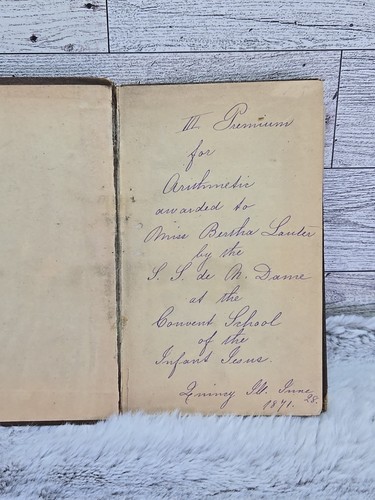 III Premium
for
Arithmetic
awarded to
Miss Bertha Lauter
by the
S. S. de N. Dame
at the
Convent School
of the
Infant Jesus.
Quincy Ill. June 28.
1871.